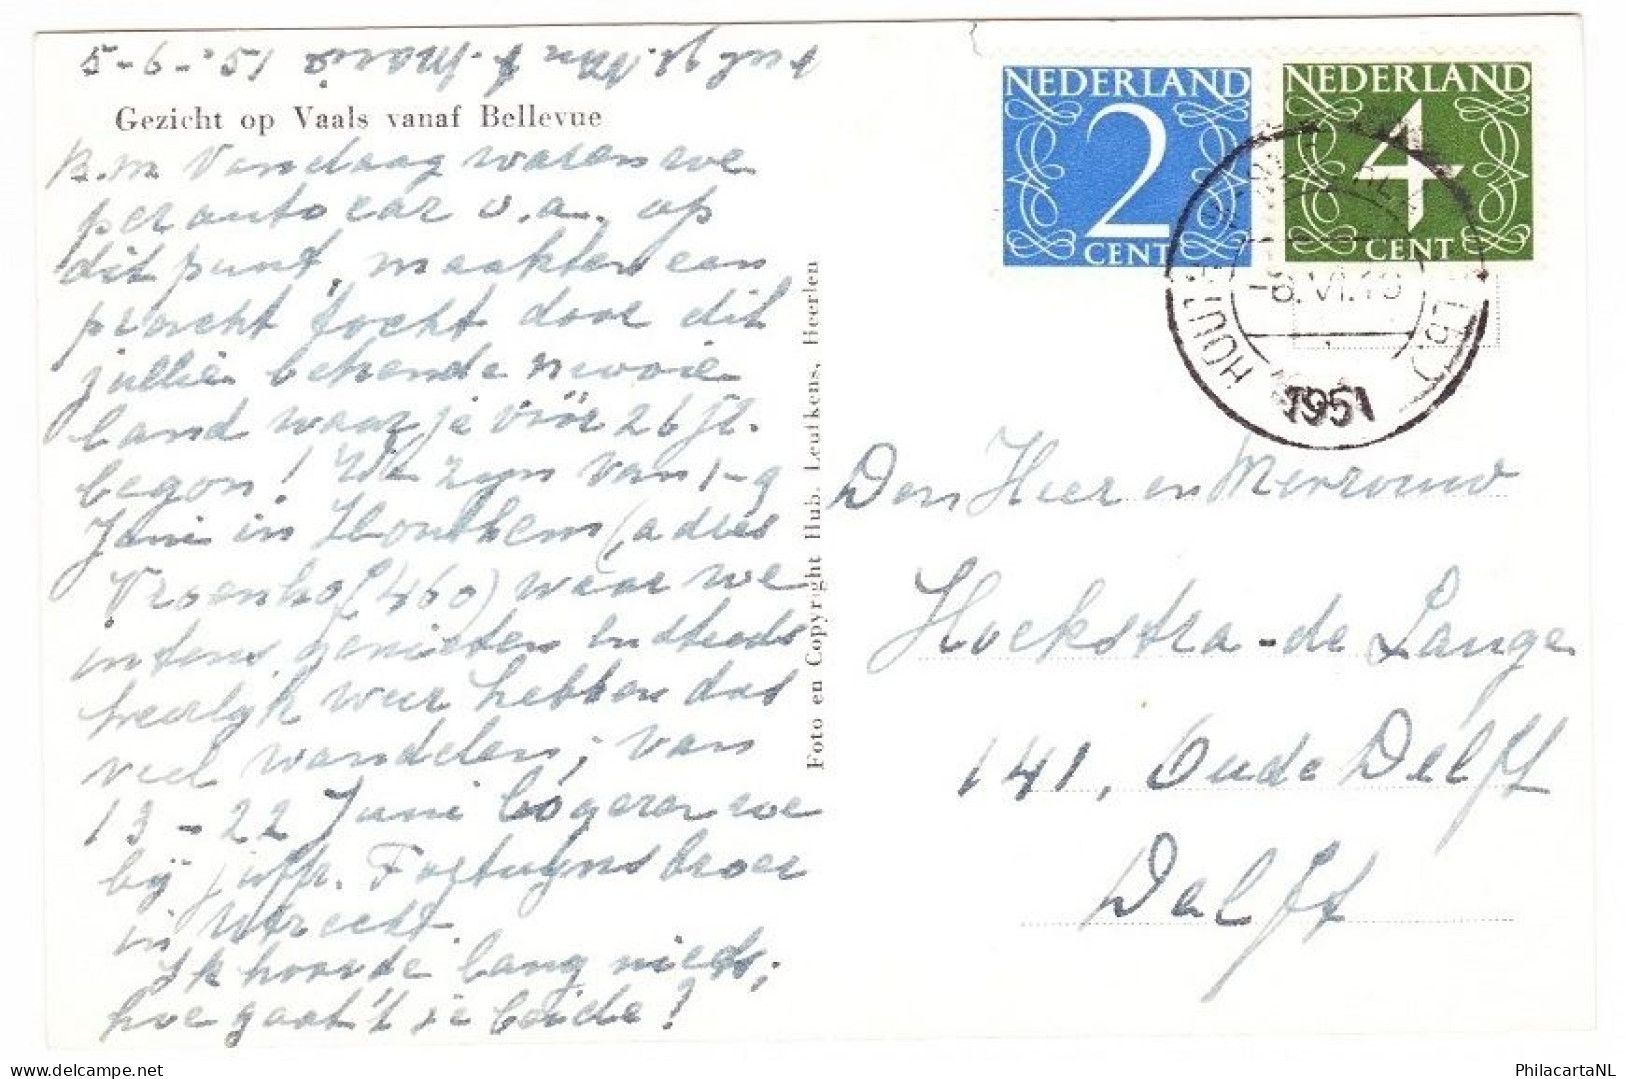 5-6-'51
Gezicht op Vaals vanaf Bellevue
B.M. Vandaag waren we
per autocar o.a. op
dit punt, maakten een
pracht tocht door dit
jullie bekende mooie
land waar je vóór 26 jr.
begon! We zijn van 1-9
Juni in Houthem (adres
Vroenhof 460) waar we
intens genieten en steeds
heerlijk weer hebben dus
veel wandelen; van
13-22 Juni logeren we
bij juffr. Fortuynsbroer
in Utrecht.
Ik hoorde lang niets,
hoe gaat 't je beide?
Foto en Copyright Hub. Leufkens, Heerlen
NEDERLAND
2
CENT
NEDERLAND
4
CENT
1951
Den Heer en Mevrouw
Hoekstra-de Lange
141, Oude Delft
Delft
PhilacartaNL